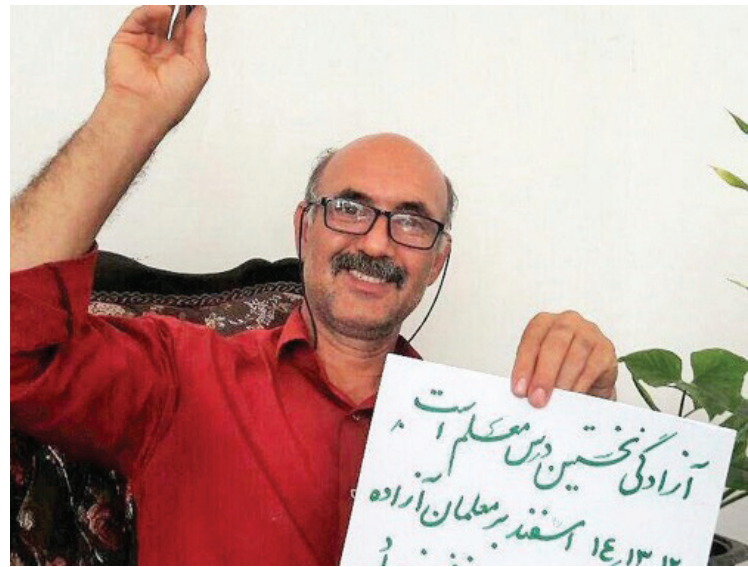 آزادگی نخستین درس معلم است.
۱۲، ۱۳، ۱۴ اسفند بر معلمان آزاده